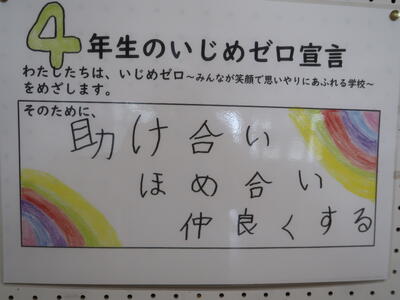 4年生のいじめゼロ宣言
わたしたちは、いじめゼロ～みんなが笑顔で思いやりにあふれる学校～
をめざします。
そのために、
助け合い
ほめ合い
仲良くする